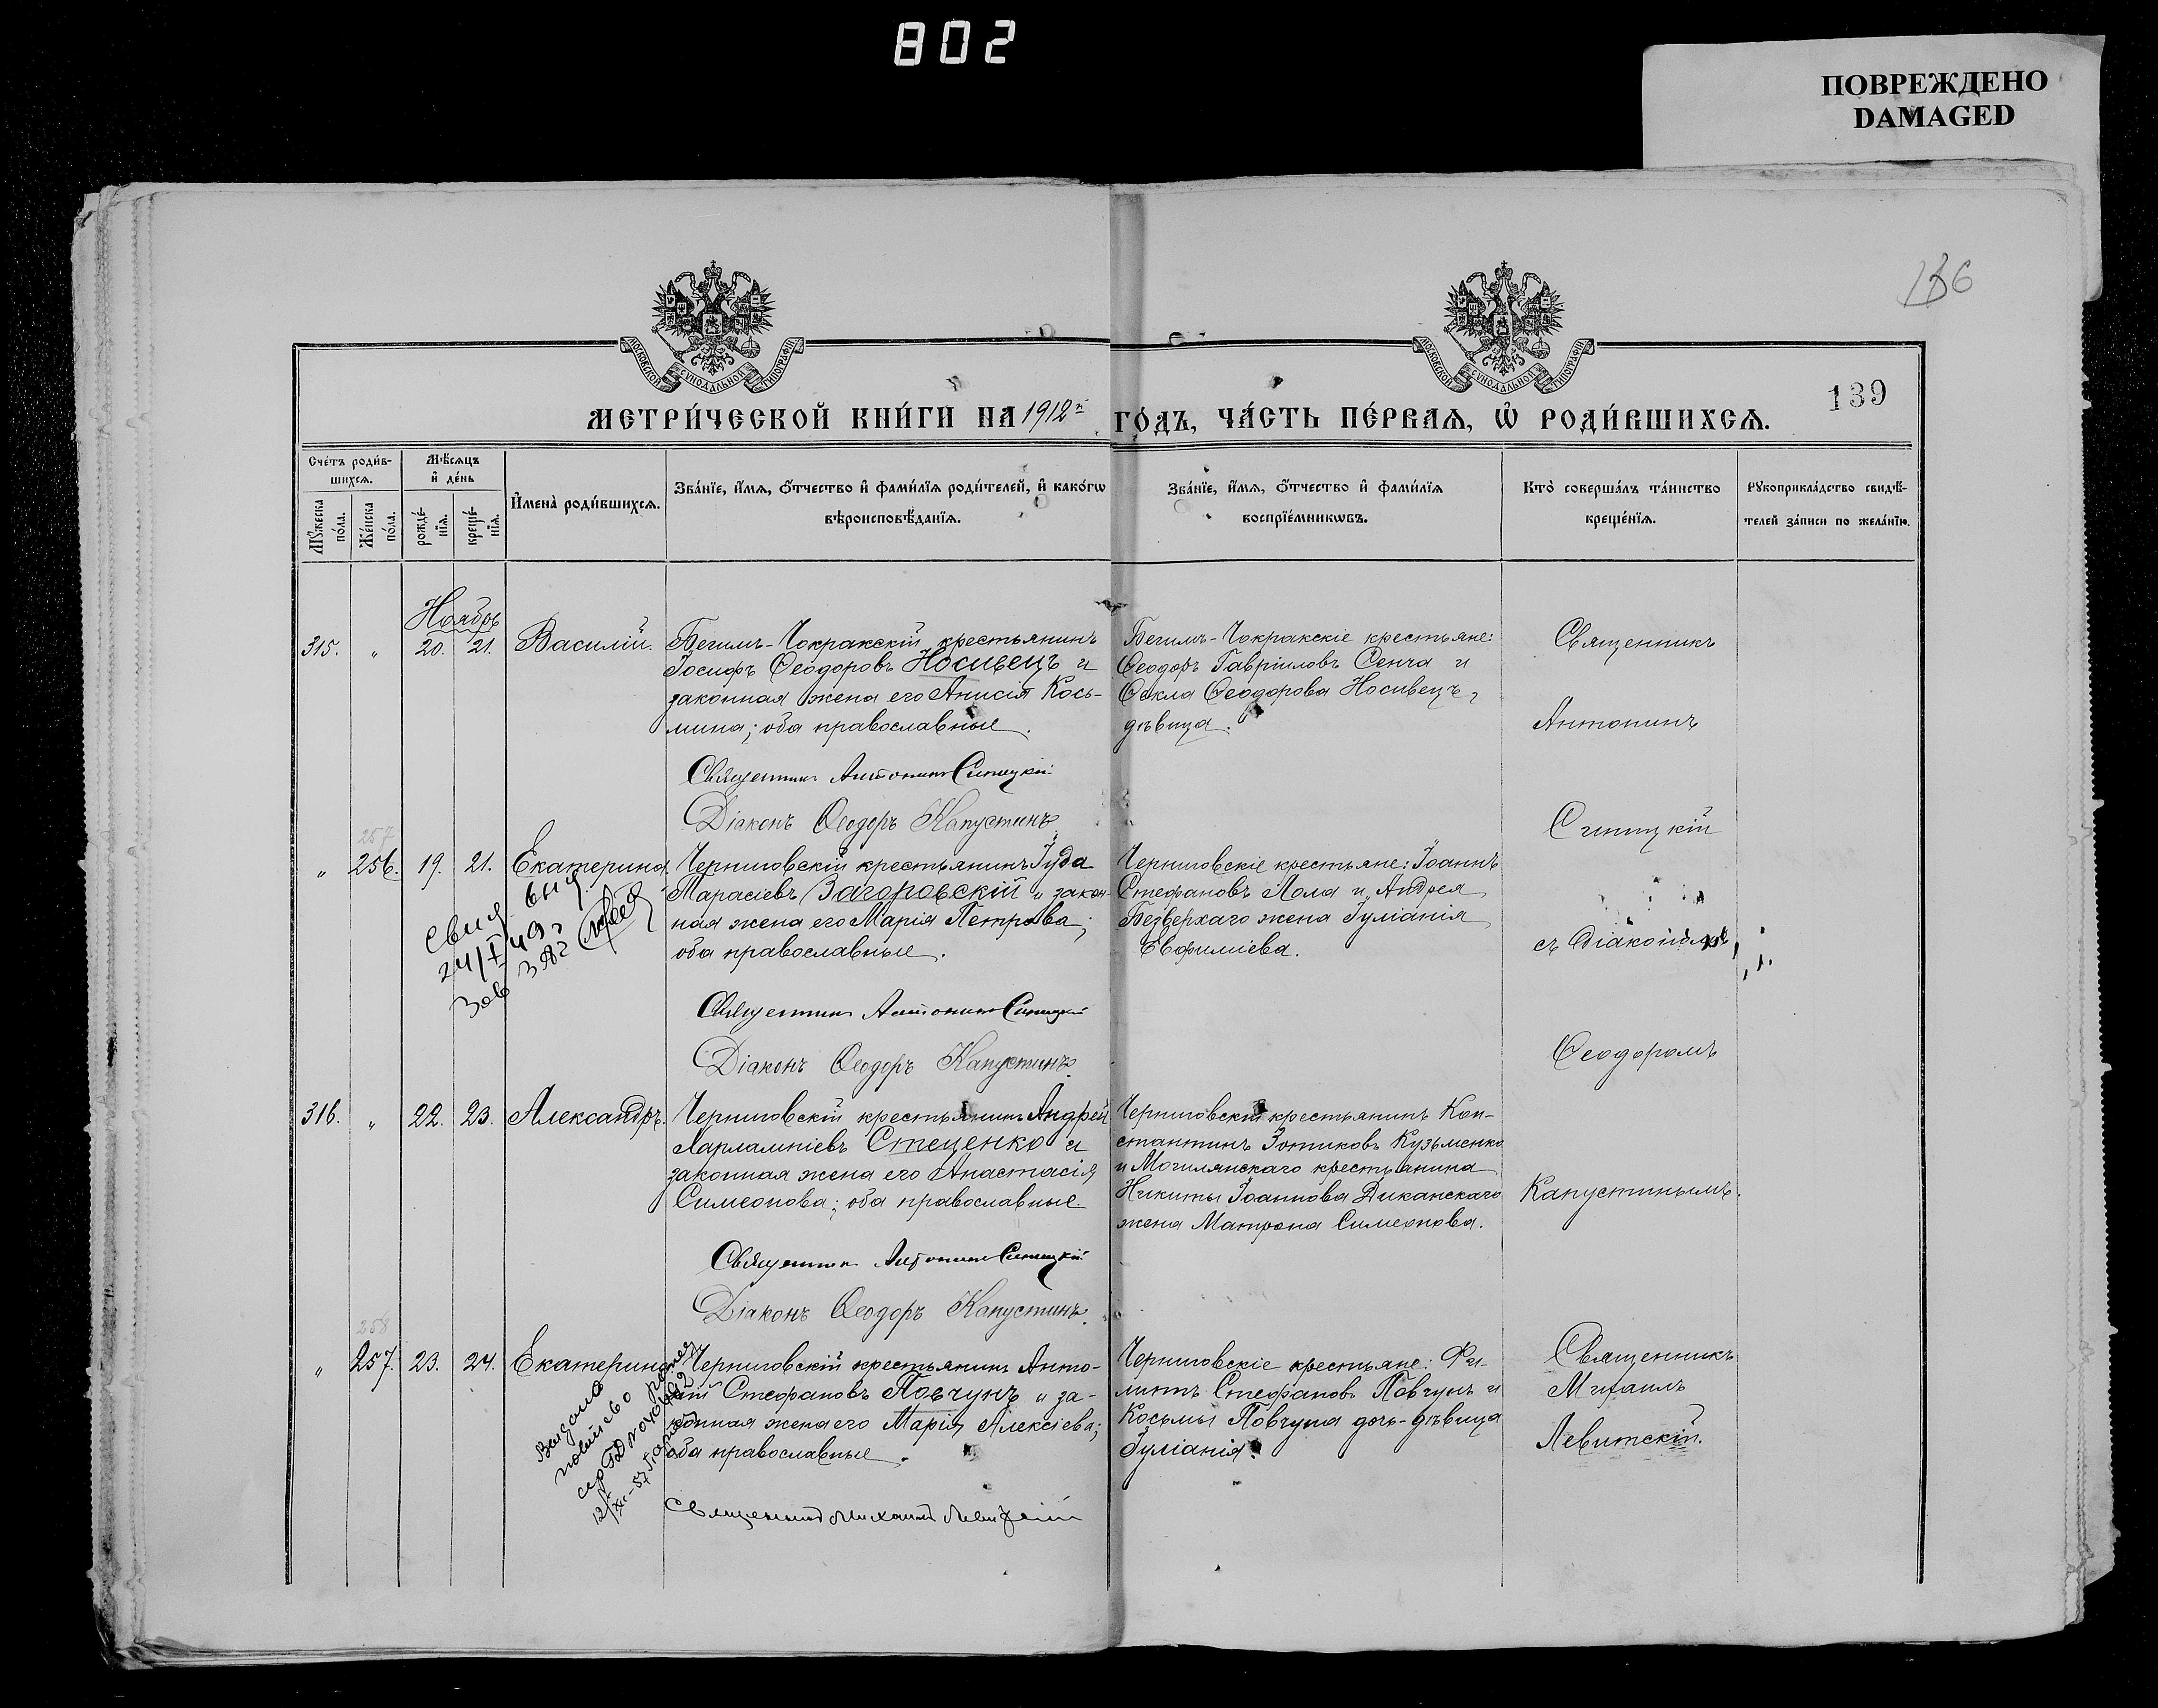 802
ПОВРЕЖДЕНО
DAMAGED
136
139
МОСКОВСКОЙ СѴНОДАЛЬНОЙ ТИПОГРАФІИ
МОСКОВСКОЙ СѴНОДАЛЬНОЙ ТИПОГРАФІИ
МЕТРИ́ЧЕСКОЙ КНИ́ГИ НА 1912й ГО́ДЪ, ЧА́СТЬ ПЕ́РВАѦ, Ѡ҆ РОДИ́ВШИХСѦ.
Сче́тъ роди́в-
шихсѧ.
Мꙋ́жеска по́ла.
Же́нска по́ла.
Мѣ́сѧцъ
и҆ де́нь
рожде́-
нїѧ.
креще́-
нїѧ.
И҆мена̀ роди́вшихсѧ.
Зва́нїе, и҆́мѧ, ѻ҆́тчество и҆ фами́лїѧ роди́телей, и҆ како́гѡ
вѣроисповѣ́данїѧ.
Зва́нїе, и҆́мѧ, ѻ҆́тчество и҆ фами́лїѧ
воспрїе́мникѡвъ.
Кто̀ соверша́лъ та́инство
креще́нїѧ.
Рꙋкоприкла́дство свидѣ́-
телей за́писи по жела́нїю.
Ноябрь
315. „ 20. 21. Василій.
Бегимъ-Чокракскій крестьянинъ
Іосифъ Ѳеодоровъ Носивецъ и
законная жена его Анисія Кось-
мина; оба православные.
Священникъ Антонинъ Синицкій
Діаконъ Ѳеодоръ Капустинъ
Бегимъ-Чокракскіе крестьяне:
Ѳеодоръ Гавріиловъ Сенча и
Ѳекла Ѳеодорова Носивецъ,
дѣвица.
Священникъ
Антонинъ
Синицкій
съ Діакономъ
Ѳеодоромъ
Капустинымъ.
257
„ 256. 19. 21. Екатерина.
Черниговскій крестьянинъ Іуда
Тарасіевъ Загоровскій и закон-
ная жена его Марія Петрова;
оба православные.
Священникъ Антонинъ Синицкій
Діаконъ Ѳеодоръ Капустинъ
Черниговскіе крестьяне: Іоаннъ
Стефановъ Лола и Андрея
Безверхаго жена Іуліанія
Евфиміева.
24/I 49 г
Зав
316. „ 22. 23. Александръ.
Черниговскій крестьянинъ Андрей
Харлампіевъ Стеценко и
законная жена его Анастасія
Симеонова; оба православные.
Священникъ Антонинъ Синицкій
Діаконъ Ѳеодоръ Капустинъ.
Черниговскій крестьянинъ Кон-
стантинъ Зотиковъ Кузьменко
и Могилянскаго крестьянина
Никиты Іоаннова Диканскаго
жена Матрона Симеонова.
258
„ 257. 23. 24. Екатерина
Черниговскій крестьянинъ Анто-
ній Стефановъ Повчунъ и за-
конная жена его Марія Алексіева;
оба православные.
Священникъ Михаилъ Левитскій
Черниговскіе крестьяне: Фи-
липпъ Стефановъ Повчунъ и
Косьмы Повчуна дочь-дѣвица
Іуліанія.
Священникъ
Михаилъ
Левитскій.
Выдано